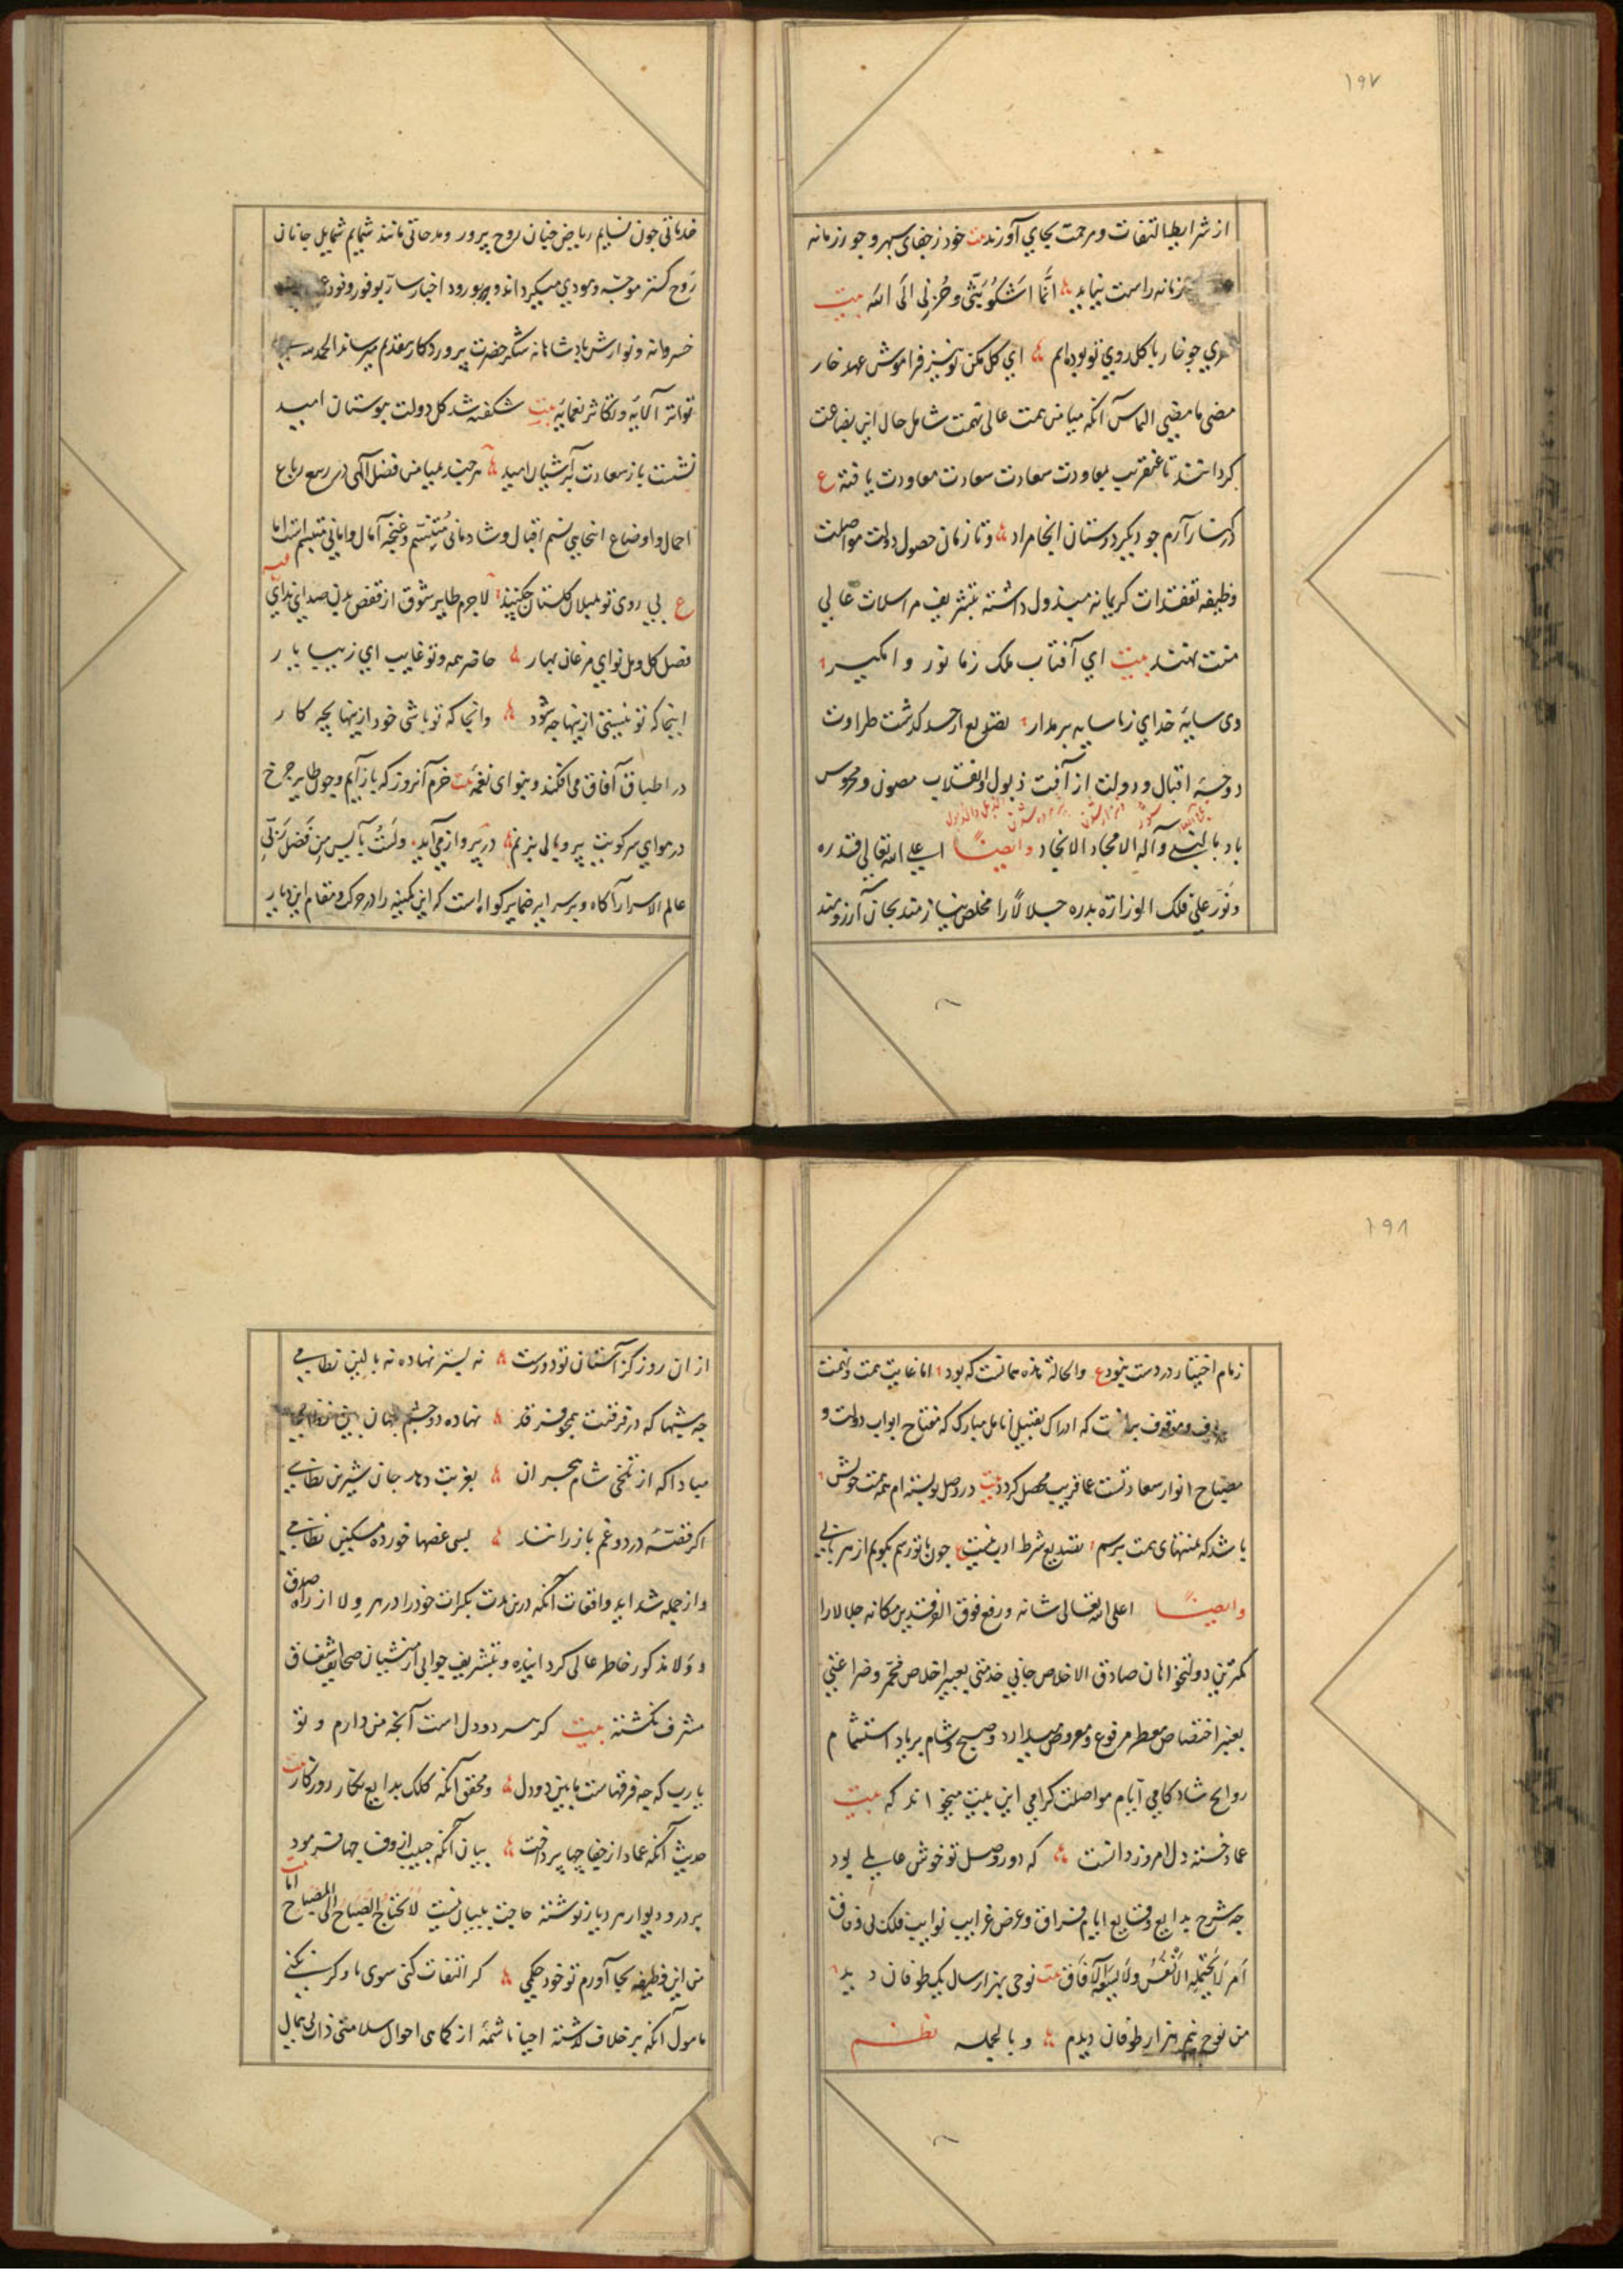 ۱۹۷
از شرایط التفات و مرحمت بجای آورند بیت خود ز جفای سپهر و جور زمانه
زمانه راست نیاید انما اشکو بثی و حزنی الی الله بیت
چو خار با گل روی تو بوده‌ایم ای گل مکن تو نیز فراموش عهد خار
مضی ما مضی التماس آنکه میامن همت عالی نهمت شامل حال این بضاعت
گردانند تا عنقریب بمعاودت سعادت سعادت معاودت یافته ع
آرم چو دیگر دوستان انجا مراد و تا زمان حصول دولت مواصلت
وظیفه تفقدات کریمانه مبذول داشته بتشریف مراسلات عالی
منت نهند بیت ای آفتاب ملک ز ما نور وا مگیر
وی سایهٔ خدای ز ما سایه بر مدار از حد گذشت طراوت
دوحهٔ اقبال و دولت از آفت ذبول و انقلاب مصون و محروس
باد بالنبی و آله الامجاد الانجاد وایضاً اعلی الله تعالی قدره
و نور علی فلک الوزارة بدره جلالاً را مخلص نیازمند بجان آرزومند
خدماتی چون نسایم ریاض جنان روح پرور و مدحاتی مانند شمایم شمایل جانان
روح گستر موجه و مودی میگرداند و بورود اخبار سار بوفور وفود
خسروانه و نوازش پادشاهانه شکر حضرت پروردگار بتقدیم میرساند الحمد لله
تواتر آلائه و تکاثر نعمائه بیت شکفته شد گل دولت ببوستان امید
نشست باز سعادت بآشیان امید هر چند بمیامن فضل الهی در ربع رباع
احمال و اوضاع انجایی نسیم اقبال و شادمانی متنسم و غنچه آمال و امانی متبسم است اما
ع بی روی تو بلبلان گلستان چکنند لاجرم طایر شوق از قفص بدن صدای ندای
فصل گل و مل نوای مرغان بهار حاضر همه و تو غایب ای زیبا یار
اینجا که تو نیستی ازینها چه شود وانجا که تو باشی خود ازینها بچه کار
در اطباق آفاق می‌افکند و بنوای نغمه بیت خرم آنروز که بازآیم و چون طایر چرخ
در هوای سر کویت پر و بالی بزنم در پرواز می‌آید ولست بآیس من فضل ربی
عالم الاسرار آگاه و بر سرایر ضمایر گواه است که این کمینه را در حرکت و مقام این دیار
۱۹۸
زمام اختیار در دست نبود ع والحالة هذه همانست که بود اما غایت همت و نهمت
موقوف برانست که ادراک تقبیل انامل مبارک که مفتاح ابواب دولت و
مصباح انوار سعادتست عما قریب محصل گردد بیت در وصل تو بسته‌ام همه همت خویش
باشد که بمنتهای همت برسم شرط ادب نیست ع چون با تو رسم بگویم از هر بابی
وایضاً اعلی الله تعالی شانه و رفع فوق الفرقدین مکانه جلالا را
کمترین دولتخواهان صادق الاخلاص جانی خدمتی بعبیر اخلاص مخمر و ضراعتی
بعنبر اختصاص معطر مرفوع و معروض میدارد و صبح و شام بر یاد استشمام
روایح شادکامی ایام مواصلت گرامی این بیت میخواند که بیت
عماد خسته دل امروز دانست که دور وصل تو خوش عالمی بود
چه شرح بدایع وقایع ایام فراق و عرض غرایب نوایب فلک بی وفاق
امر لا تحتمله الانفس ولا یسعه الآفاق بیت نوحی بهزار سال یک طوفان دید
من نوح نیم هزار طوفان دیدم و بالجمله نظم
از ان روز کز آستان تو دورست نه بستر نهاده نه بالین نظامی
چه شبها که در فرقتت همچو فرقد نهاده دو چشم جهان بین نظامی
مبادا که از تلخی شام هجران بغربت دهد جان شیرین نظامی
اگر قصهٔ درد و غم باز راند بسی غصها خورده مسکین نظامی
و از جمله شداید واقعات آنکه درین مدت بکرات خود را در هر ولا از راه صدق
و ولا مذکور خاطر عالی گردانیده و بتشریف جوابی از منشیان صحایف اشفاق
مشرف نگشته بیت گر هر دو دل است آنچه من دارم و تو
یا رب که چه فرقهاست مابین دو دل و محقق آنکه کلک بدایع نگار روزگار بیت
حدیث آنکه عماد از جفا چها پرداخت بیان آنکه حبیب از وفا چها فرمود
بر در و دیوار هر دیار نوشته حاجت به بیان نیست لا تحتاج الصباح الی المصباح اما بیت
من این وظیفه بجا آورم تو خود حکمی گر التفات کنی سوی ما و گر نکنی
مامول آنکه بر خلاف گذشته احیانا شمهٔ از کماهی احوال سلامتی ذات بی همال